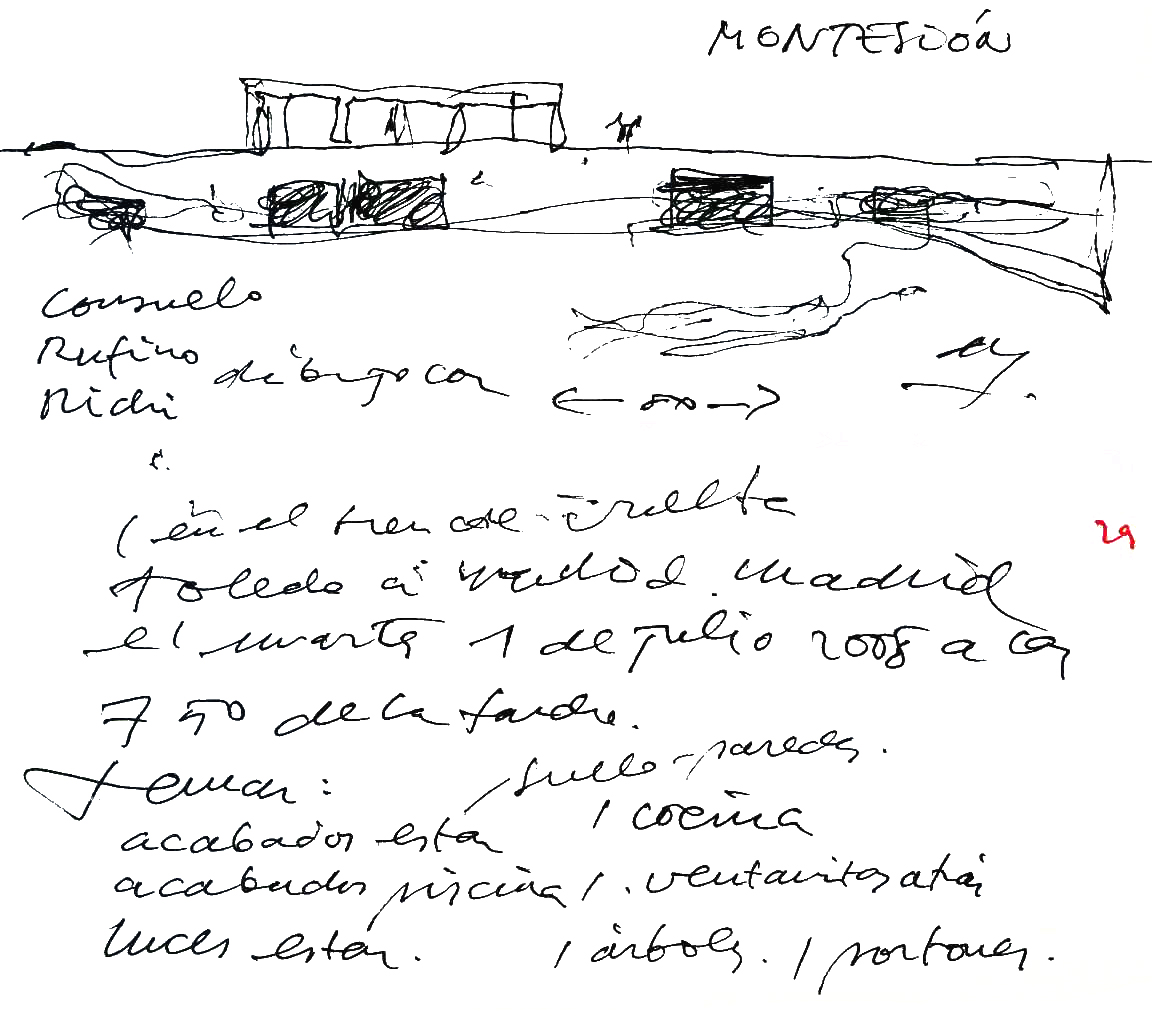 MONTESIÓN
Consuelo
Rufino
Richi
dibujo con
(en el tren de vuelta
Toledo a Madrid
29
el martes 1 de julio 2008 a las
7 50 de la tarde.
temas: suelo-paredes.
acabados están / cocina
acabados piscina / . ventanitas atrás
luces están. / árboles. / portones.